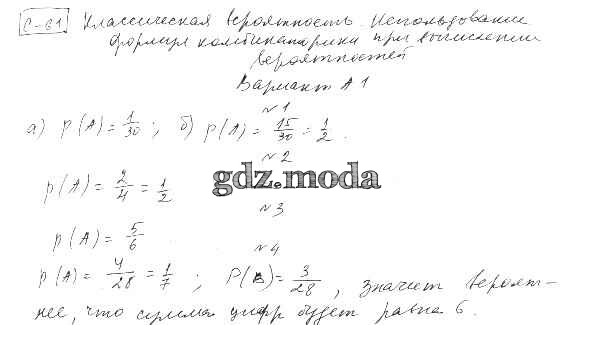 С-61 Классическая вероятность. Использование
формул комбинаторики при вычислении
вероятностей
Вариант А1
№1
а) p(A) = 1/30; б) p(A) = 15/30 = 1/2.
№2
p(A) = 2/4 = 1/2
gdz.moda
№3
p(A) = 5/6
№4
p(A) = 4/28 = 1/7; P(B) = 3/28, значит вероят-
нее, что сумма цифр будет равна 6.